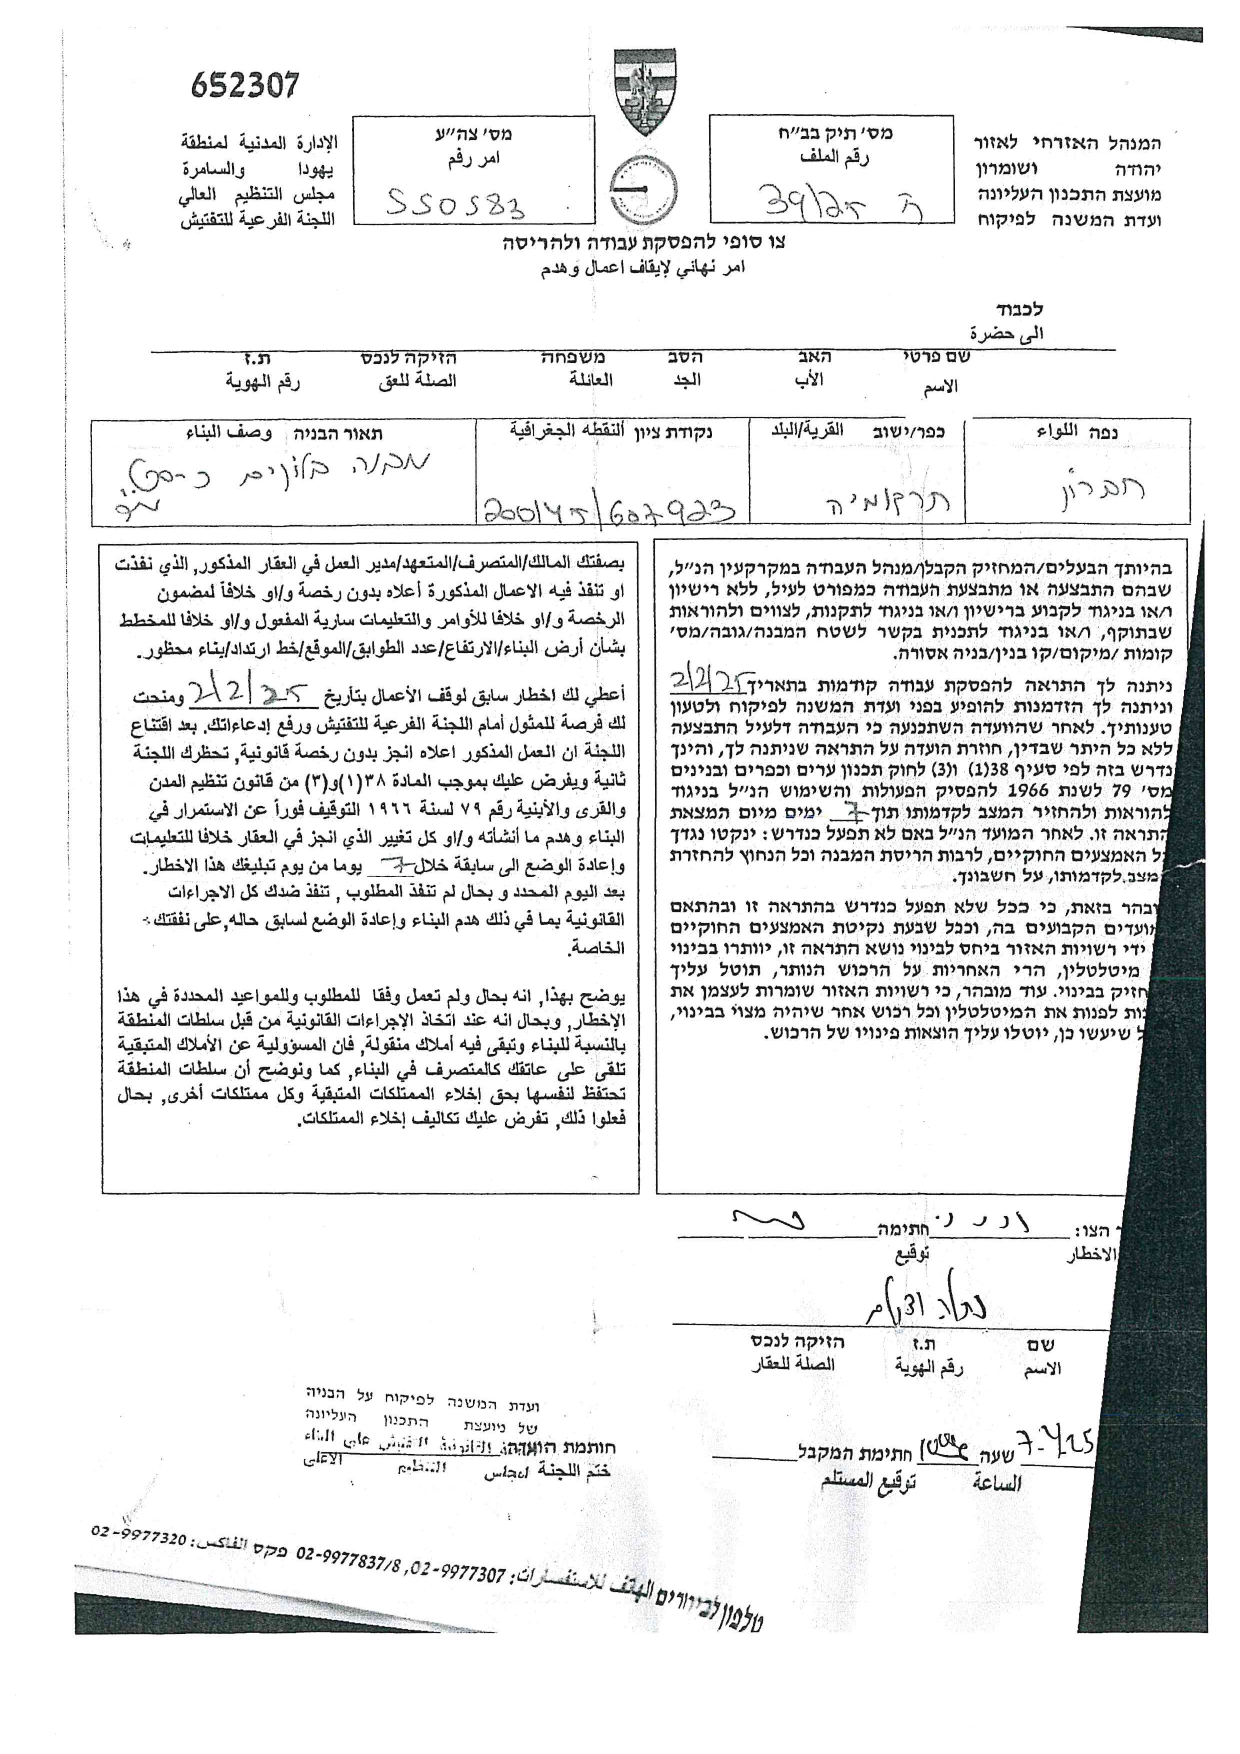 652307
המנהל האזרחי לאזור
יהודה ושומרון
מועצת התכנון העליונה
ועדת המשנה לפיקוח
מס׳ תיק בב״ח
رقم الملف
ה 39/25
מס׳ צה״ע
امر رقم
550583
الإدارة المدنية لمنطقة
يهودا والسامرة
مجلس التنظيم العالي
اللجنة الفرعية للتفتيش
צו סופי להפסקת עבודה ולהריסה
امر نهائي لإيقاف اعمال وهدم
לכבוד
الى حضرة
שם פרטי האב הסב משפחה הזיקה לנכס ת.ז
الاسم الأب الجد العائلة الصلة للعق رقم الهوية
נפה اللواء
חברון
כפר/ישוב القرية/البلد
תרקומיה
נקודת ציון النقطه الجغرافية
200145/607923
תאור הבניה وصف البناء
מבנה בלוקים כ-
היותך הבעלים/המחזיק הקבלן/מנהל העבודה במקרקעין הנ״ל,
שבהם התבצעה או מתבצעת העבודה כמפורט לעיל, ללא רישיון
ו/או בניגוד לקבוע ברישיון ו/או בניגוד לתקנות, לצווים ולהוראות
שבתוקף, ו/או בניגוד לתכנית בקשר לשטח המבנה/גובה/מס׳
קומות /מיקום/קו בנין/בניה אסורה.
ניתנה לך התראה להפסקת עבודה קודמות בתאריך 2/2/25
וניתנה לך הזדמנות להופיע בפני ועדת המשנה לפיקוח ולטעון
טענותיך. לאחר שהוועדה השתכנעה כי העבודה דלעיל התבצעה
ללא כל היתר שבדין, חוזרת הועדה על התראה שניתנה לך, והינך
נדרש בזה לפי סעיף 38(1) ו(3) לחוק תכנון ערים וכפרים ובנינים
מס׳ 79 לשנת 1966 להפסיק הפעולות והשימוש הנ״ל בניגוד
להוראות ולהחזיר המצב לקדמותו תוך 7 ימים מיום המצאת
התראה זו. לאחר המועד הנ״ל באם לא תפעל כנדרש: ינקטו נגדך
ל האמצעים החוקיים, לרבות הריסת המבנה וכל הנחוץ להחזרת
מצב לקדמותו, על חשבונך.
ובהר בזאת, כי ככל שלא תפעל כנדרש בהתראה זו ובהתאם
ועדים הקבועים בה, וככל שבעת נקיטת האמצעים החוקיים
ידי רשויות האזור ביחס לבינוי נושא התראה זו, יוותרו בבינוי
מיטלטלין, הרי האחריות על הרכוש הנותר, תוטל עליך
חזיק בבינוי. עוד מובהר, כי רשויות האזור שומרות לעצמן את
ות לפנות את המיטלטלין וכל רכוש אחר שיהיה מצוי בבינוי,
ל שיעשו כן, יוטלו עליך הוצאות פינויו של הרכוש.
بصفتك المالك/المتصرف/المتعهد/مدير العمل في العقار المذكور, الذي نفذت
او تنفذ فيه الاعمال المذكورة أعلاه بدون رخصة و/او خلافاً لمضمون
الرخصة و/او خلافا للأوامر والتعليمات سارية المفعول و/او خلافا للمخطط
بشأن أرض البناء/الارتفاع/عدد الطوابق/الموقع/خط ارتداد/بناء محظور.
أعطي لك اخطار سابق لوقف الأعمال بتأريخ 2/2/25 ومنحت
لك فرصة للمثول أمام اللجنة الفرعية للتفتيش ورفع إدعاءاتك. بعد اقتناع
اللجنة ان العمل المذكور اعلاه انجز بدون رخصة قانونية, تحظرك اللجنة
ثانية ويفرض عليك بموجب المادة ٣٨(١)و(٣) من قانون تنظيم المدن
والقرى والأبنية رقم ٧٩ لسنة ١٩٦٦ التوقيف فوراً عن الاستمرار في
البناء وهدم ما أنشأته و/او كل تغيير الذي انجز في العقار خلافا للتعليمات
وإعادة الوضع الى سابقة خلال 7 يوما من يوم تبليغك هذا الاخطار.
بعد اليوم المحدد و بحال لم تنفذ المطلوب , تنفذ ضدك كل الاجراءات
القانونية بما في ذلك هدم البناء وإعادة الوضع لسابق حاله,على نفقتك
الخاصة.
يوضح بهذا, انه بحال ولم تعمل وفقا للمطلوب وللمواعيد المحددة في هذا
الإخطار, وبحال انه عند اتخاذ الإجراءات القانونية من قبل سلطات المنطقة
بالنسبة للبناء وتبقى فيه أملاك منقولة, فان المسؤولية عن الأملاك المتبقية
تلقى على عاتقك كالمتصرف في البناء, كما ونوضح أن سلطات المنطقة
تحتفظ لنفسها بحق إخلاء الممتلكات المتبقية وكل ممتلكات أخرى, بحال
فعلوا ذلك, تفرض عليك تكاليف إخلاء الممتلكات.
הצו: חתימה
الاخطار توقيع
שם ת.ז הזיקה לנכס
الاسم رقم الهوية الصلة للعقار
7.4.25 שעה חתימת המקבל
الساعة توقيع المستلم
ועדת המשנה לפיקוח על הבניה
של מועצת התכנון העליונה
חותמת הועדה
ختم اللجنة لمجلس التنظيم الاعلى
טלפון לבירורים الهتف للاستفسارات: 02-9977307, 02-9977837/8 פקס الفاكس: 02-9977320